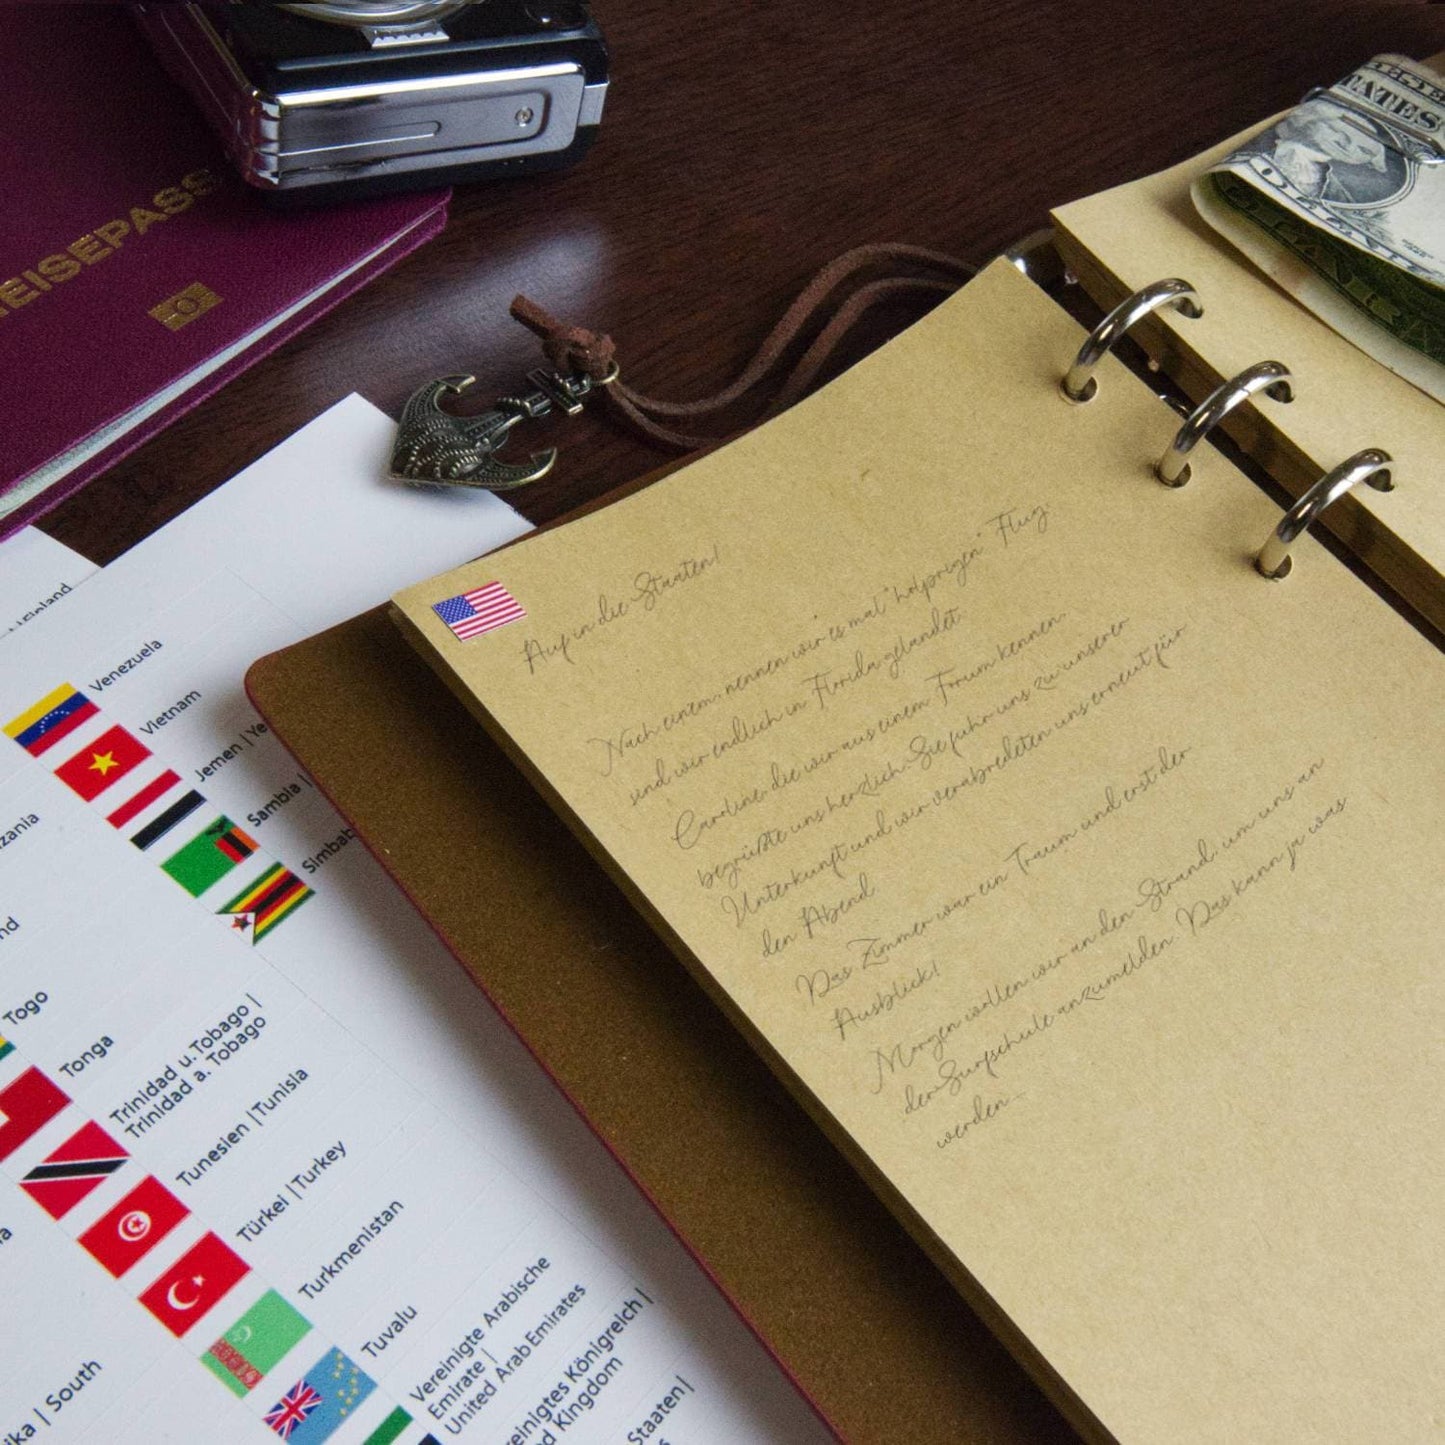 REISEPASS
TATES
Finland
Venezuela
Vietnam
Jemen | Ye
Sambia |
Simbab
Togo
Tonga
Trinidad u. Tobago |
Trinidad a. Tobago
Tunesien | Tunisia
Türkei | Turkey
Turkmenistan
Tuvalu
Vereinigte Arabische
Emirate |
United Arab Emirates
einigtes Königreich |
d Kingdom
Staaten |
ika | South
Auf in die Staaten!
Nach einem, nennen wir es mal "holprigen" Flug,
sind wir endlich in Florida gelandet.
Caroline, die wir aus einem Forum kennen,
begrüßte uns herzlich. Sie fuhr uns zu unserer
Unterkunft und wir verabredeten uns erneut für
den Abend.
Das Zimmer war ein Traum und erst der
Ausblick!
Morgen wollen wir an den Strand, um uns an
der Surfschule anzumelden. Das kann ja was
werden...